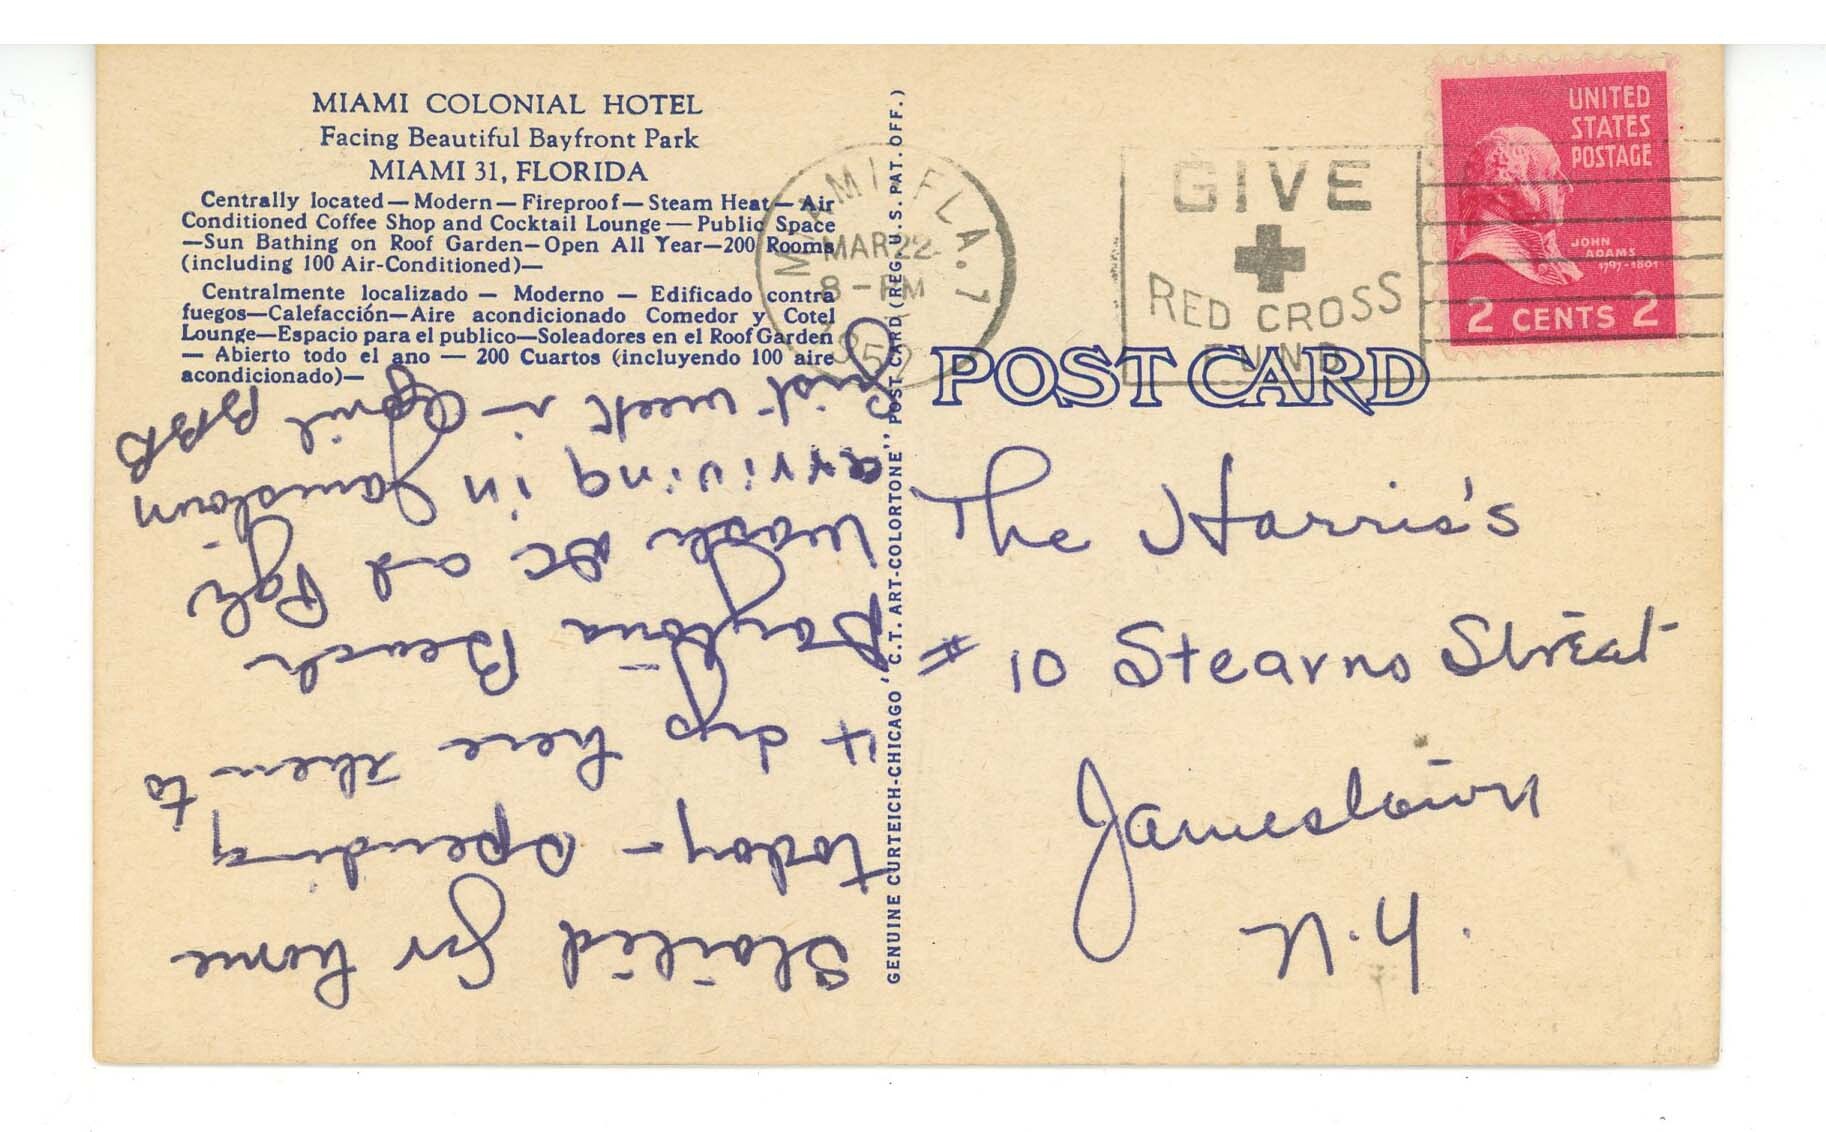 MIAMI COLONIAL HOTEL
Facing Beautiful Bayfront Park
MIAMI 31, FLORIDA
Centrally located — Modern — Fireproof — Steam Heat — Air
Conditioned Coffee Shop and Cocktail Lounge — Public Space
—Sun Bathing on Roof Garden—Open All Year—200 Rooms
(including 100 Air-Conditioned)—
Centralmente localizado — Moderno — Edificado contra
fuegos—Calefacción—Aire acondicionado Comedor y Cotel
Lounge—Espacio para el publico—Soleadores en el Roof Garden
— Abierto todo el ano — 200 Cuartos (incluyendo 100 aire
acondicionado)—
Started for home
today - Spending
4 dys here then to
Daytona Beach
Wash DC and Pgh.
arriving in Jamestown
first week in April BBB
GENUINE CURTEICH-CHICAGO "C.T. ART-COLORTONE" POST CARD (REG. U.S. PAT. OFF.)
MIAMI, FLA. 1
MAR 22
8 - PM
1952
GIVE
RED CROSS
FUND
UNITED
STATES
POSTAGE
JOHN
ADAMS
1797-1801
2 CENTS 2
POST CARD
The Harris's
# 10 Stearns Street
Jamestown
N.Y.